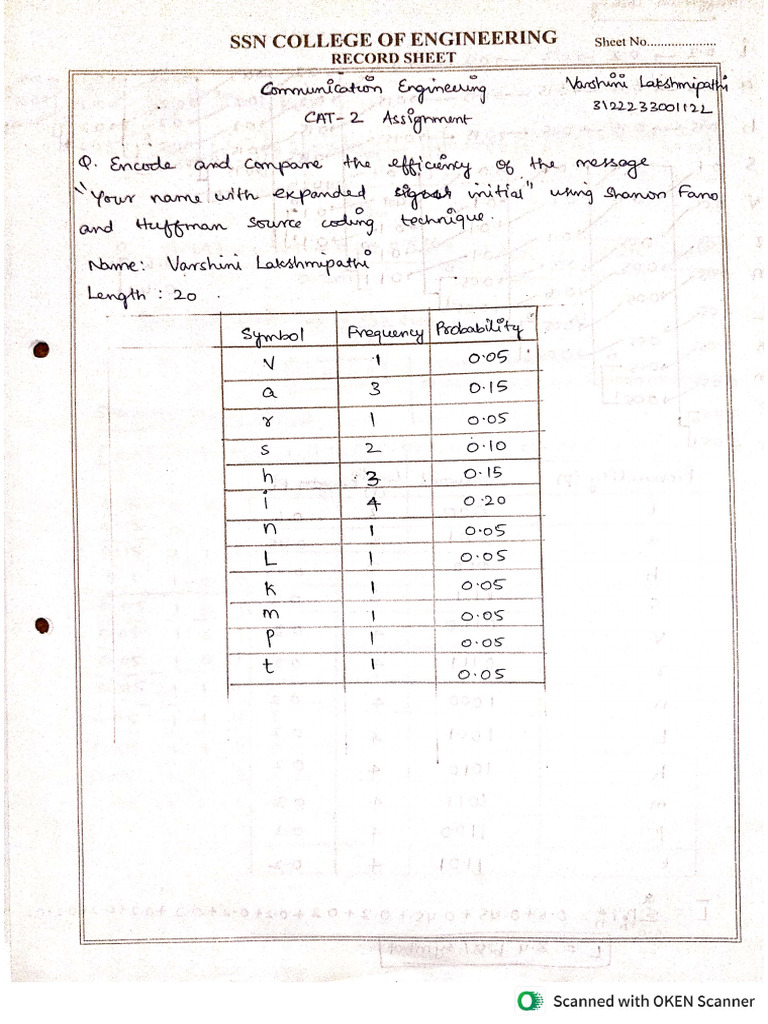 SSN COLLEGE OF ENGINEERING
Sheet No....................
RECORD SHEET
Communication Engineering
Varshini Lakshmipathi
3122233001122
CAT-2 Assignment
Q. Encode and compare the efficiency of the message
"Your name with expanded initial" using Shanon Fano
and Huffman source coding technique.
Name: Varshini Lakshmipathi
Length : 20 .
Symbol Frequency Probability
V 1 0.05
a 3 0.15
r 1 0.05
s 2 0.10
h 3 0.15
i 4 0.20
n 1 0.05
L 1 0.05
k 1 0.05
m 1 0.05
P 1 0.05
t 1 0.05
Scanned with OKEN Scanner